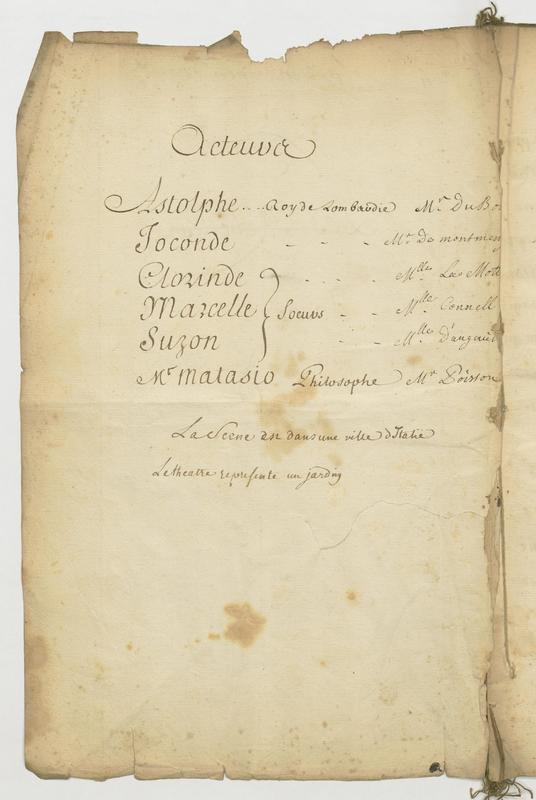 Acteurs
Astolphe .... Roy de Lombardie Mr. Du Bo
Joconde - - - Mr. De montmeny
Clorinde - - - - Mlle. La Mott
Marcelle Soeurs - - Mlle. Connell
Suzon - - Mlle. D'angevil
Mr. Matasio Philosophe Mr. Poisson
La Scene est dans une ville d'Italie
Le theatre represente un jardin